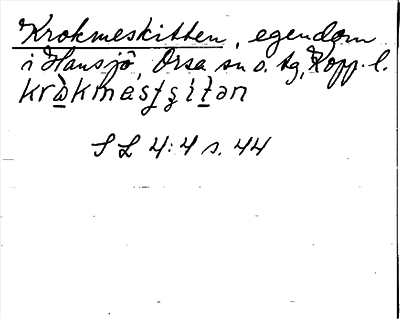 Krokmeskitten, egendom
i Hansjö, Orsa sn o. tg, Kopp. l.
krὼkmesţʂitən
S L 4:4 s. 44